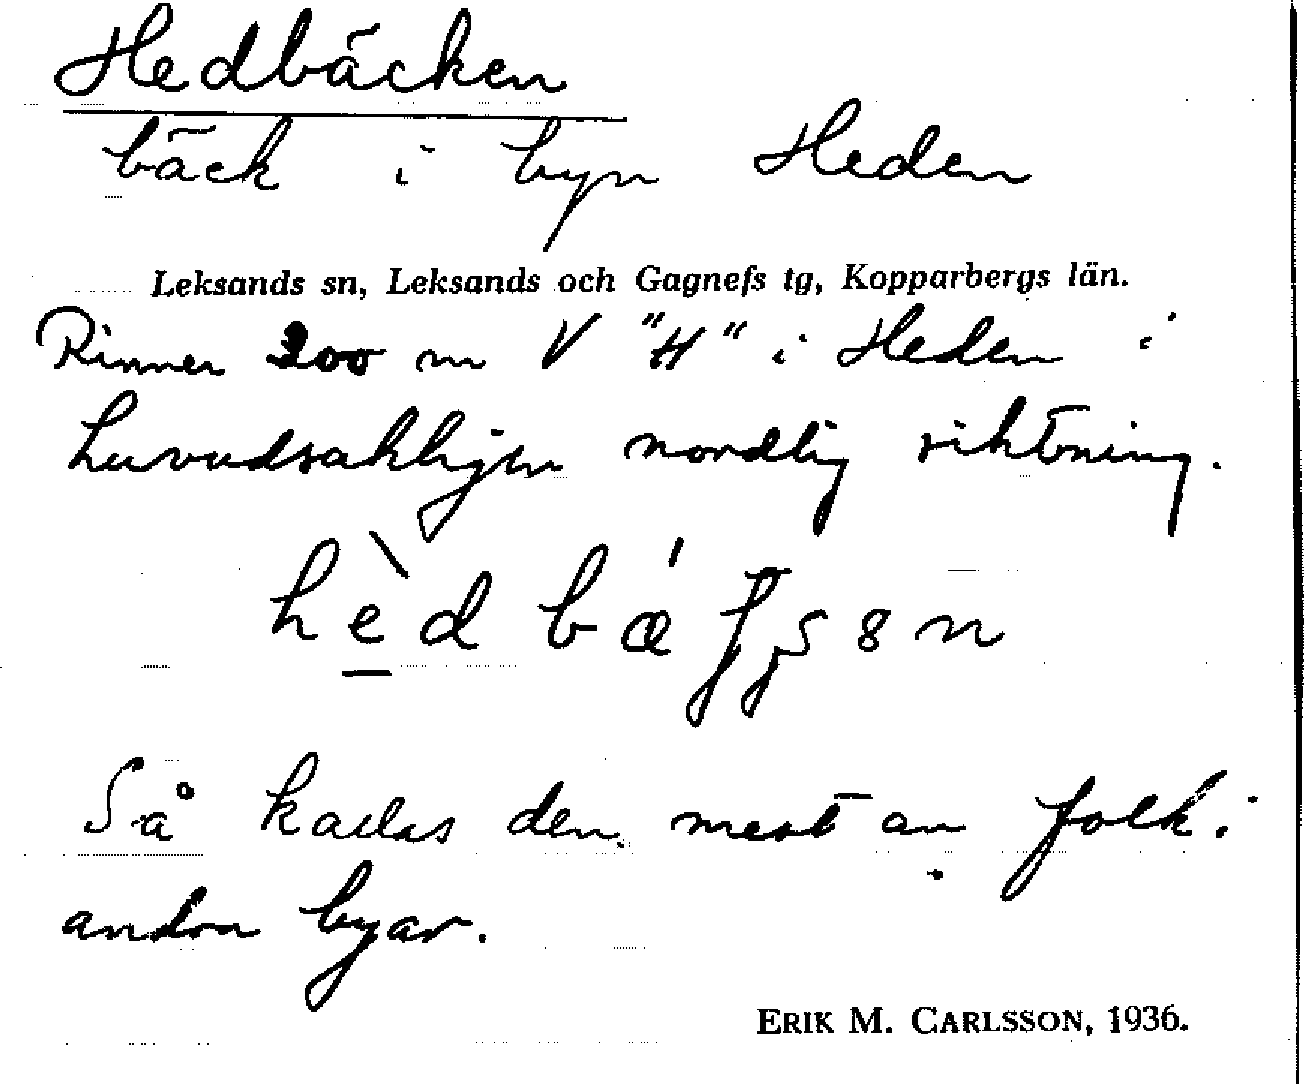 Hedbäcken
bäck i byn Heden
Leksands sn, Leksands och Gagnefs tg, Kopparbergs län.
Rinner 200 m V "H" i Heden i
huvudsakligen nordlig riktning.
Så kallas den mest av folk i
andra byar.
ERIK M. CARLSSON, 1936.